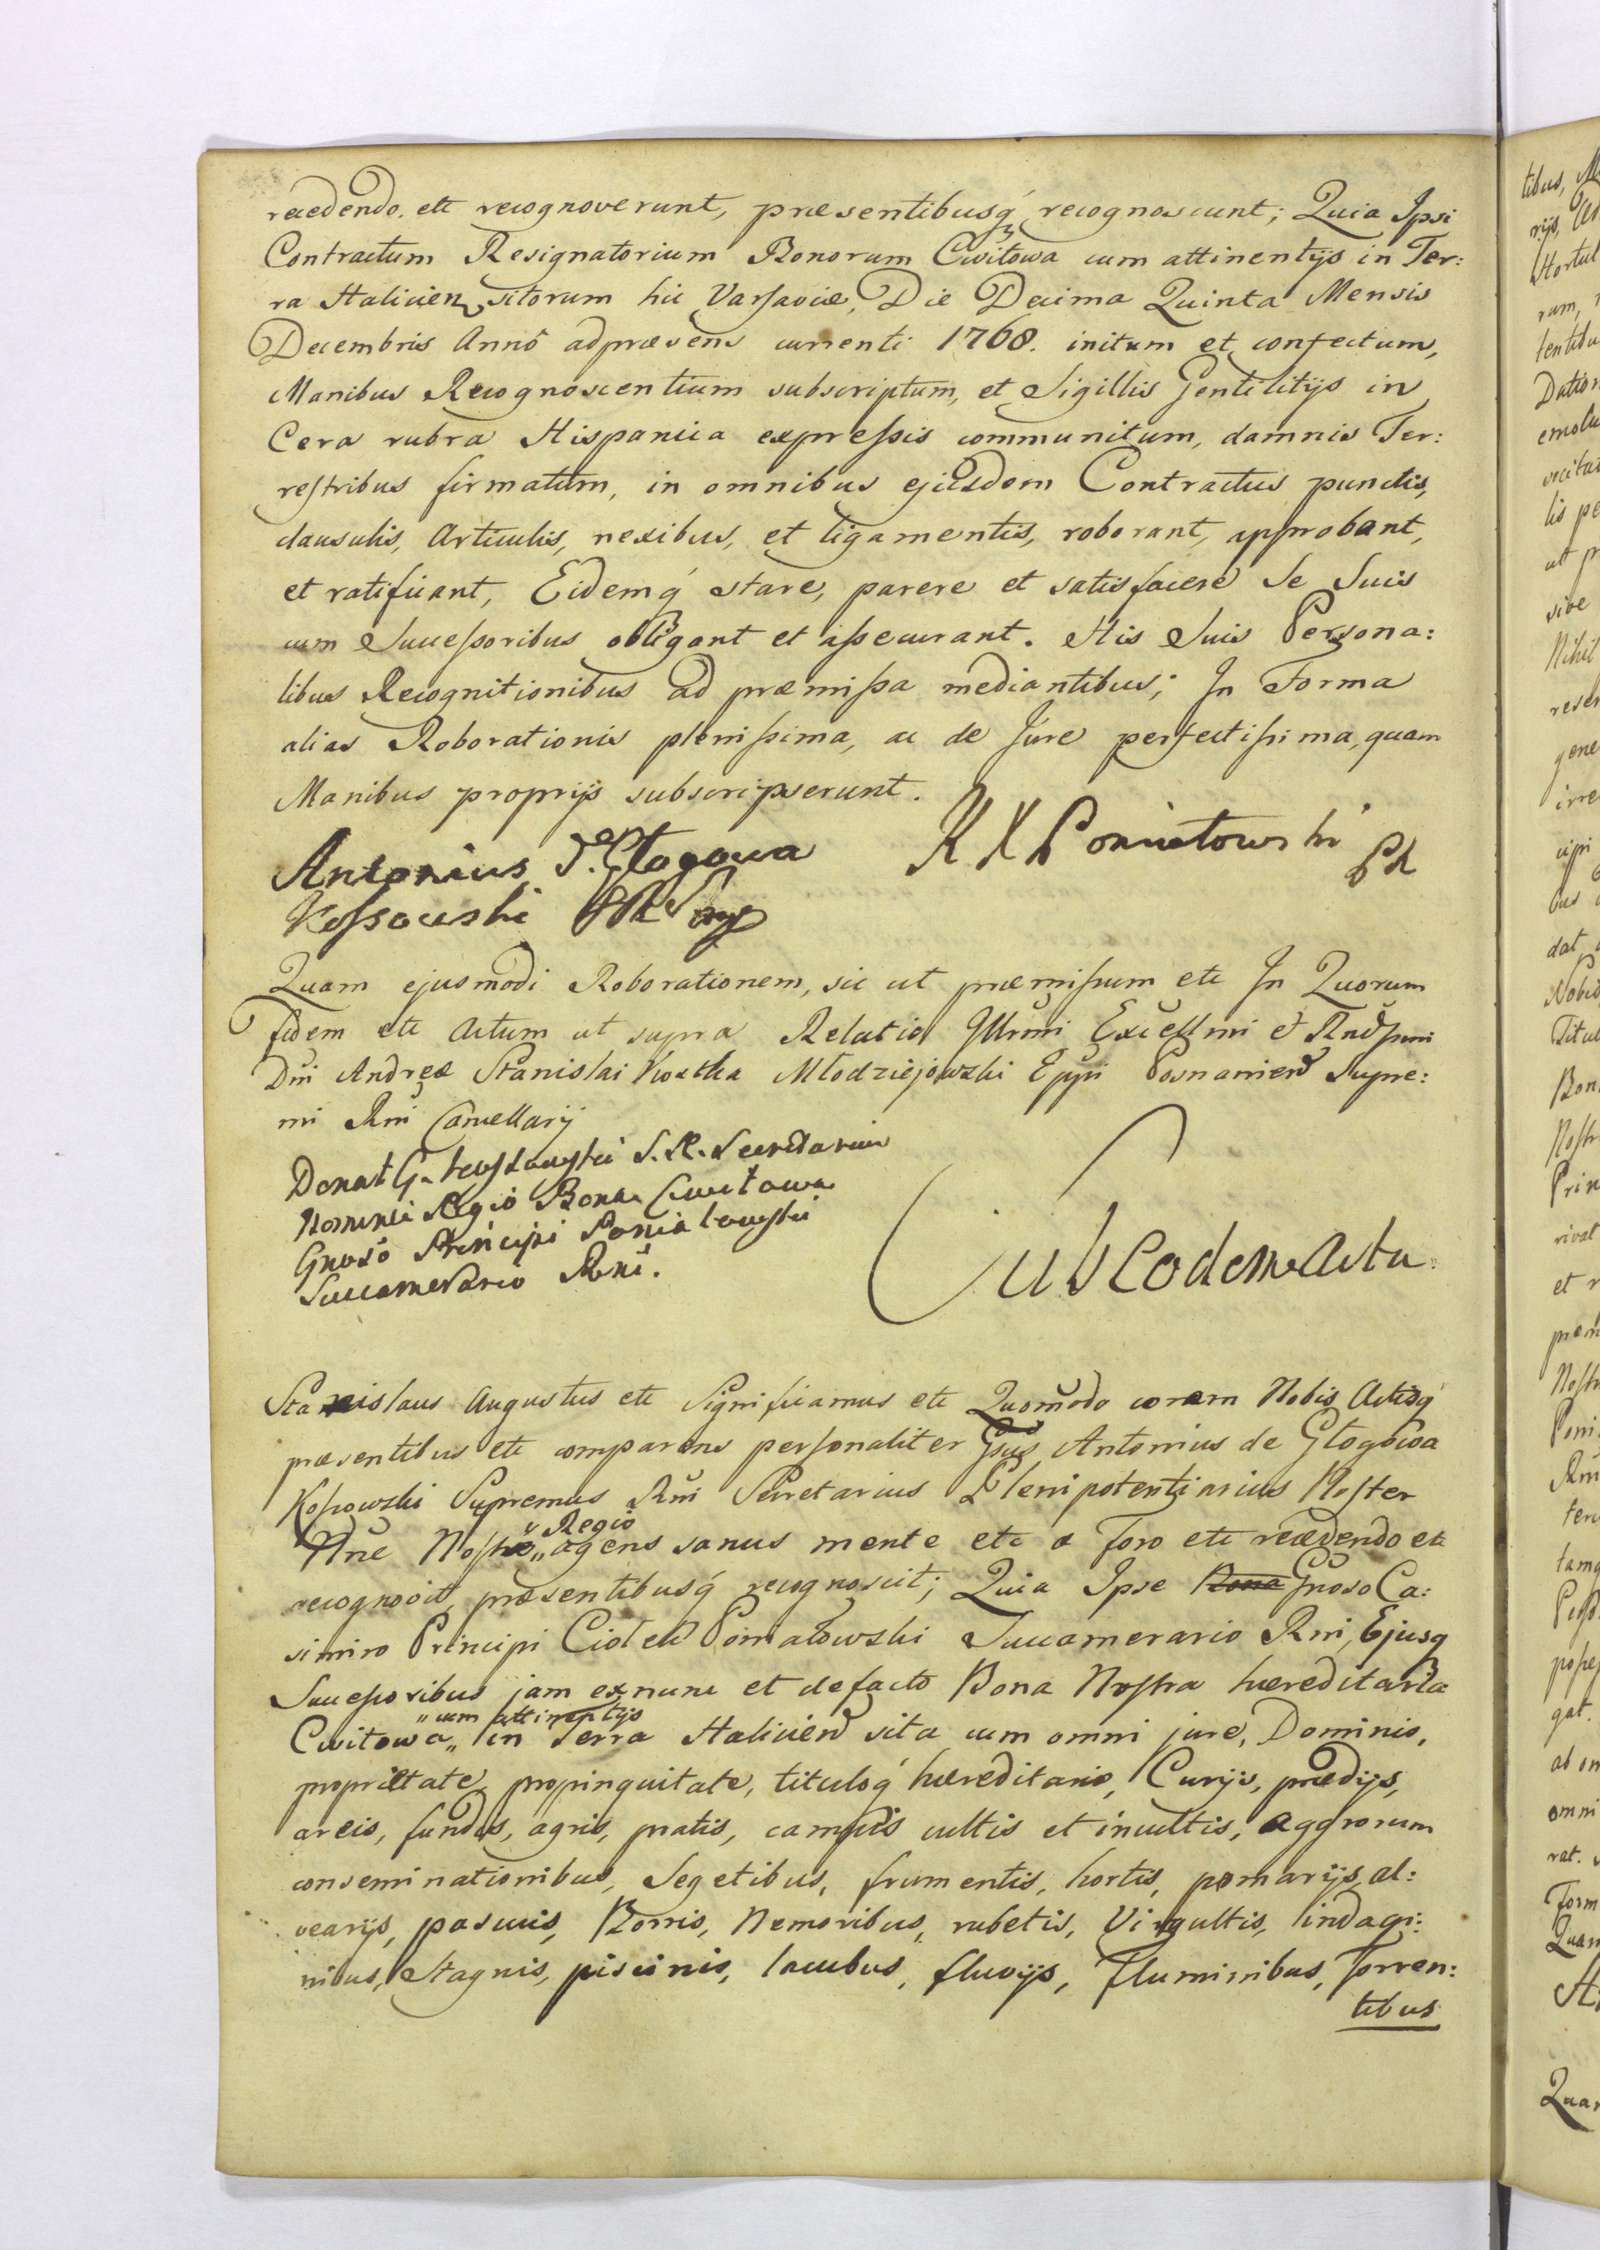 recedendo. etc recognoverunt, præsentibusq́ recognoscunt; Quia Ipsi
Contractum Resignatorium Bonorum Cwitowa cum attinentijs in Ter:
ra Halicien sitorum hic Varsaviæ, Die Decima Quinta Mensis
Decembris Annô adpræsens currenti 1768. initum et confectum,
Manibus Recognoscentium subscriptum, et Sigillis Gentilitijs in
Cera rubra Hispanica expreſsis communitum, damnis Ter:
reſtribus firmatum, in omnibus ejusdem Contractus punctis,
clausulis, Articulis, nexibus, et ligamentis, roborant, approbant,
et ratificant, Eidemq́ stare, parere et satisfacere Se Suis
cum Succeſsoribus obligant et aſsecurant. His Suis Persona:
libus Recognitionibus ad præmiſsa mediantibus; In Forma
alias Roborationis pleniſsima, ac de Jure perfectiſsima, quam
Manibus proprijs subscripserunt.
Antonius d. Głogowa
Koſsowski
K X Poniatowski PK
Quam ejusmodi Roborationem, sic ut præmiſsum etc In Quorum
fidem etc Actum ut supra Relatio Illrmi Excellmi et Rndſsmi
Dni Andreæ Stanislai Kostka Młodziejowski Eppi Posnanien Supre:
mi Rni Cancellarij
Donat G. S. R. Secretarius
Nomine Regio Bona Cwitowa
Gnoso Principi Poniatowski
Succamerario Rni.
Sub eodem Actu:
Stanislaus Augustus etc Significamus etc Quomodo coram Nobis Actisq́
præsentibus etc comparens perſonaliter Gsus Antonius de Głogowa
Koſsowski Supremus Rni Secretarius Plenipotentiarius Noſter
Nne Noſtro „ Regio agens sanus mente etc a Foro etc recedendo etc
recognovit, præsentibusq́ recognoscit; Quia Ipse Bona Gnoso Ca:
simiro Principi Ciołek Poniatowski Succamerario Rni, Ejusq
Succeſsoribus jam exnunc et defacto Bona Noſtra hæreditaria
Cwitowa „ cum attinentijs in Terra Halicien sita cum omni jure, Dominio,
proprietate, propinquitate, tituloq́ hæreditario, Curijs, prædijs,
areis, fundis, agris, pratis, campis cultis et incultis, aggrorum
conseminationibus, Segetibus, frumentis, hortis, pomarijs, al:
vearijs, pascuis, Borris, Nemoribus, rubetis, Virgultis, indagi:
nibus, Stagnis, piscinis, lacubus, fluvijs, Fluminibus, Torren:
tibus